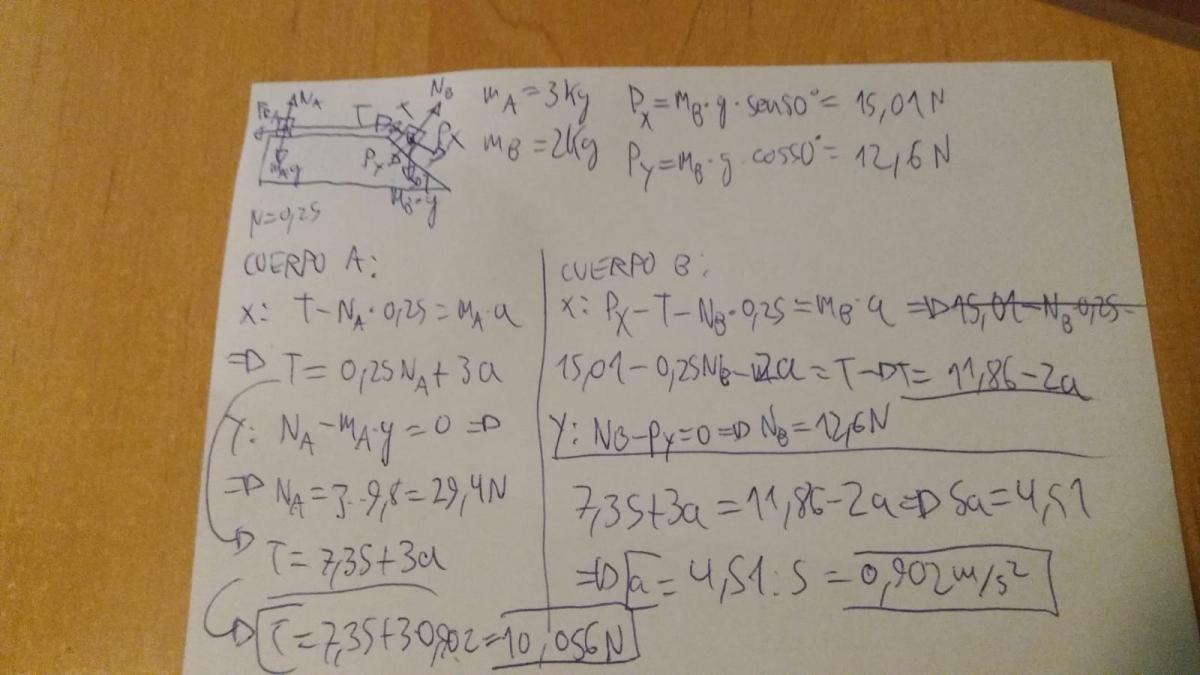 NA
NB
T
PX
PY
mA·g
mB·g
μ=0,25
mA=3kg
mB=2kg
PX=mB·g·sen50°=15,01N
PY=mB·g·cos50°=12,6N
CUERPO A:
X: T-NA·0,25=mA·a
⇒ T=0,25NA+3a
Y: NA-mA·g=0 ⇒
⇒ NA=3·9,8=29,4N
T=7,35+3a
T=7,35+3·0,902=10,056N
CUERPO B:
X: PX-T-NB·0,25=mB·a ⇒ 15,01-NB·0,25-
15,01-0,25NB-2a=T→T=11,86-2a
Y: NB-PY=0⇒NB=12,6N
7,35+3a=11,86-2a⇒5a=4,51
⇒a=4,51:5=0,902m/s²